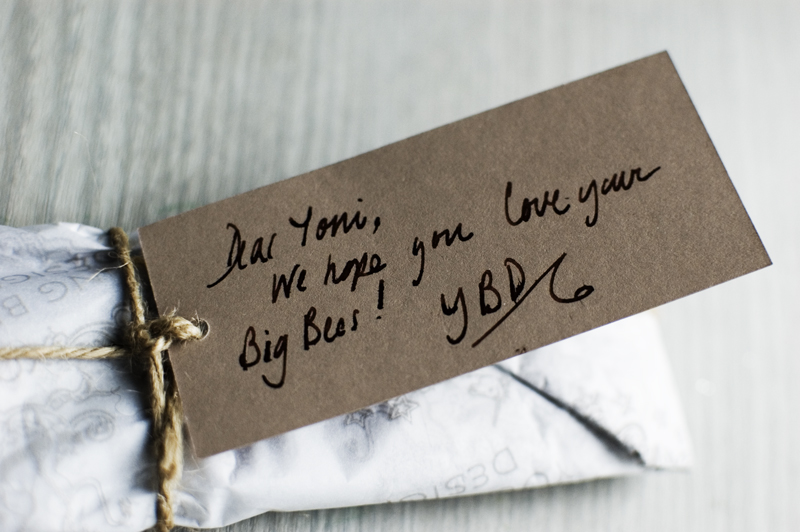 Dear Yoni,
We hope you love your
Big Bees! YBD
DESIG